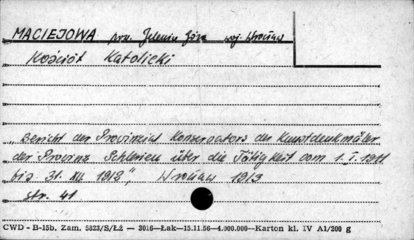 MACIEJOWA pow. Jelenia Góra woj. Wrocław
Kościół Katolicki
„Bericht der Provinzial Konservators der Kunstdenkmäler
der Provinz Schlesien über die Tätigkeit vom 1. I. 1911
bis 31. XII. 1912", Wrocław 1913
str. 41
CWD - B-15b. Zam. 5823/S/Łż — 2016—Łak—15.11.56—4.000.000—Karton kl. IV A1/200 g